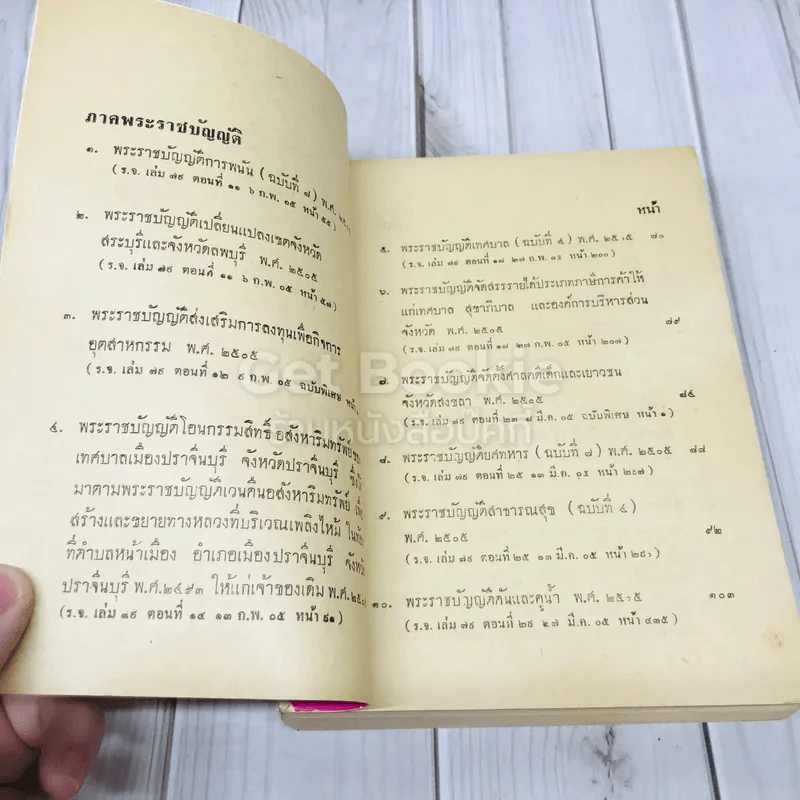 ภาคพระราชบัญญัติ
๑. พระราชบัญญัติการพนัน (ฉบับที่ ๗) พ.ศ.
(ร.จ. เล่ม ๗๙ ตอนที่ ๑๑ ๖ ก.พ. ๐๕ หน้า ๕๕)
๒. พระราชบัญญัติเปลี่ยนแปลงเขตจังหวัด
สระบุรีและจังหวัดลพบุรี พ.ศ. ๒๕๐๕
(ร.จ. เล่ม ๗๙ ตอนที่ ๑๑ ๖ ก.พ. ๐๕ หน้า ๕๗)
๓. พระราชบัญญัติส่งเสริมการลงทุนเพื่อกิจการ
อุตสาหกรรม พ.ศ. ๒๕๐๕
(ร.จ. เล่ม ๗๙ ตอนที่ ๑๒ ๙ ก.พ. ๐๕ ฉบับพิเศษ หน้า
๔. พระราชบัญญัติโอนกรรมสิทธิ์อสังหาริมทรัพย์ของ
เทศบาลเมืองปราจีนบุรี จังหวัดปราจีนบุรี ซึ่ง
มาตามพระราชบัญญัติเวนคืนอสังหาริมทรัพย์ เพื่อ
สร้างและขยายทางหลวงที่บริเวณเพลิงไหม้ ในท้อง
ที่ตำบลหน้าเมือง อำเภอเมืองปราจีนบุรี จังหวัด
ปราจีนบุรี พ.ศ. ๒๔๙๓ ให้แก่เจ้าของเดิม พ.ศ.
(ร.จ. เล่ม ๗๙ ตอนที่ ๑๔ ๑๓ ก.พ. ๐๕ หน้า ๘๑)
หน้า
๕. พระราชบัญญัติเทศบาล (ฉบับที่ ๔) พ.ศ. ๒๕๐๕ ๗๐
(ร.จ. เล่ม ๗๙ ตอนที่ ๑๘ ๒๗ ก.พ. ๐๕ หน้า ๒๐๐)
๖. พระราชบัญญัติจัดสรรรายได้ประเภทภาษีการค้าให้
แก่เทศบาล สุขาภิบาล และองค์การบริหารส่วน
จังหวัด พ.ศ. ๒๕๐๕ ๗๙
(ร.จ. เล่ม ๗๙ ตอนที่ ๑๘ ๒๗ ก.พ. ๐๕ หน้า ๒๐๗)
๗. พระราชบัญญัติจัดตั้งศาลคดีเด็กและเยาวชน
จังหวัดสงขลา พ.ศ. ๒๕๐๕ ๘๕
(ร.จ. เล่ม ๗๙ ตอนที่ ๒๓ ๘ มี.ค. ๐๕ ฉบับพิเศษ หน้า ๑)
๘. พระราชบัญญัติยศทหาร (ฉบับที่ ๗) พ.ศ. ๒๕๐๕ ๘๘
(ร.จ. เล่ม ๗๙ ตอนที่ ๒๕ ๑๓ มี.ค. ๐๕ หน้า ๒๘๗)
๙. พระราชบัญญัติสาธารณสุข (ฉบับที่ ๔)
พ.ศ. ๒๕๐๕ ๙๒
(ร.จ. เล่ม ๗๙ ตอนที่ ๒๕ ๑๓ มี.ค. ๐๕ หน้า ๒๙๑)
๑๐. พระราชบัญญัติคันและคูน้ำ พ.ศ. ๒๕๐๕ ๑๐๓
(ร.จ. เล่ม ๗๙ ตอนที่ ๒๙ ๒๗ มี.ค. ๐๕ หน้า ๔๓๕)
Get Bookie
ร้านหนังสือเก็ท